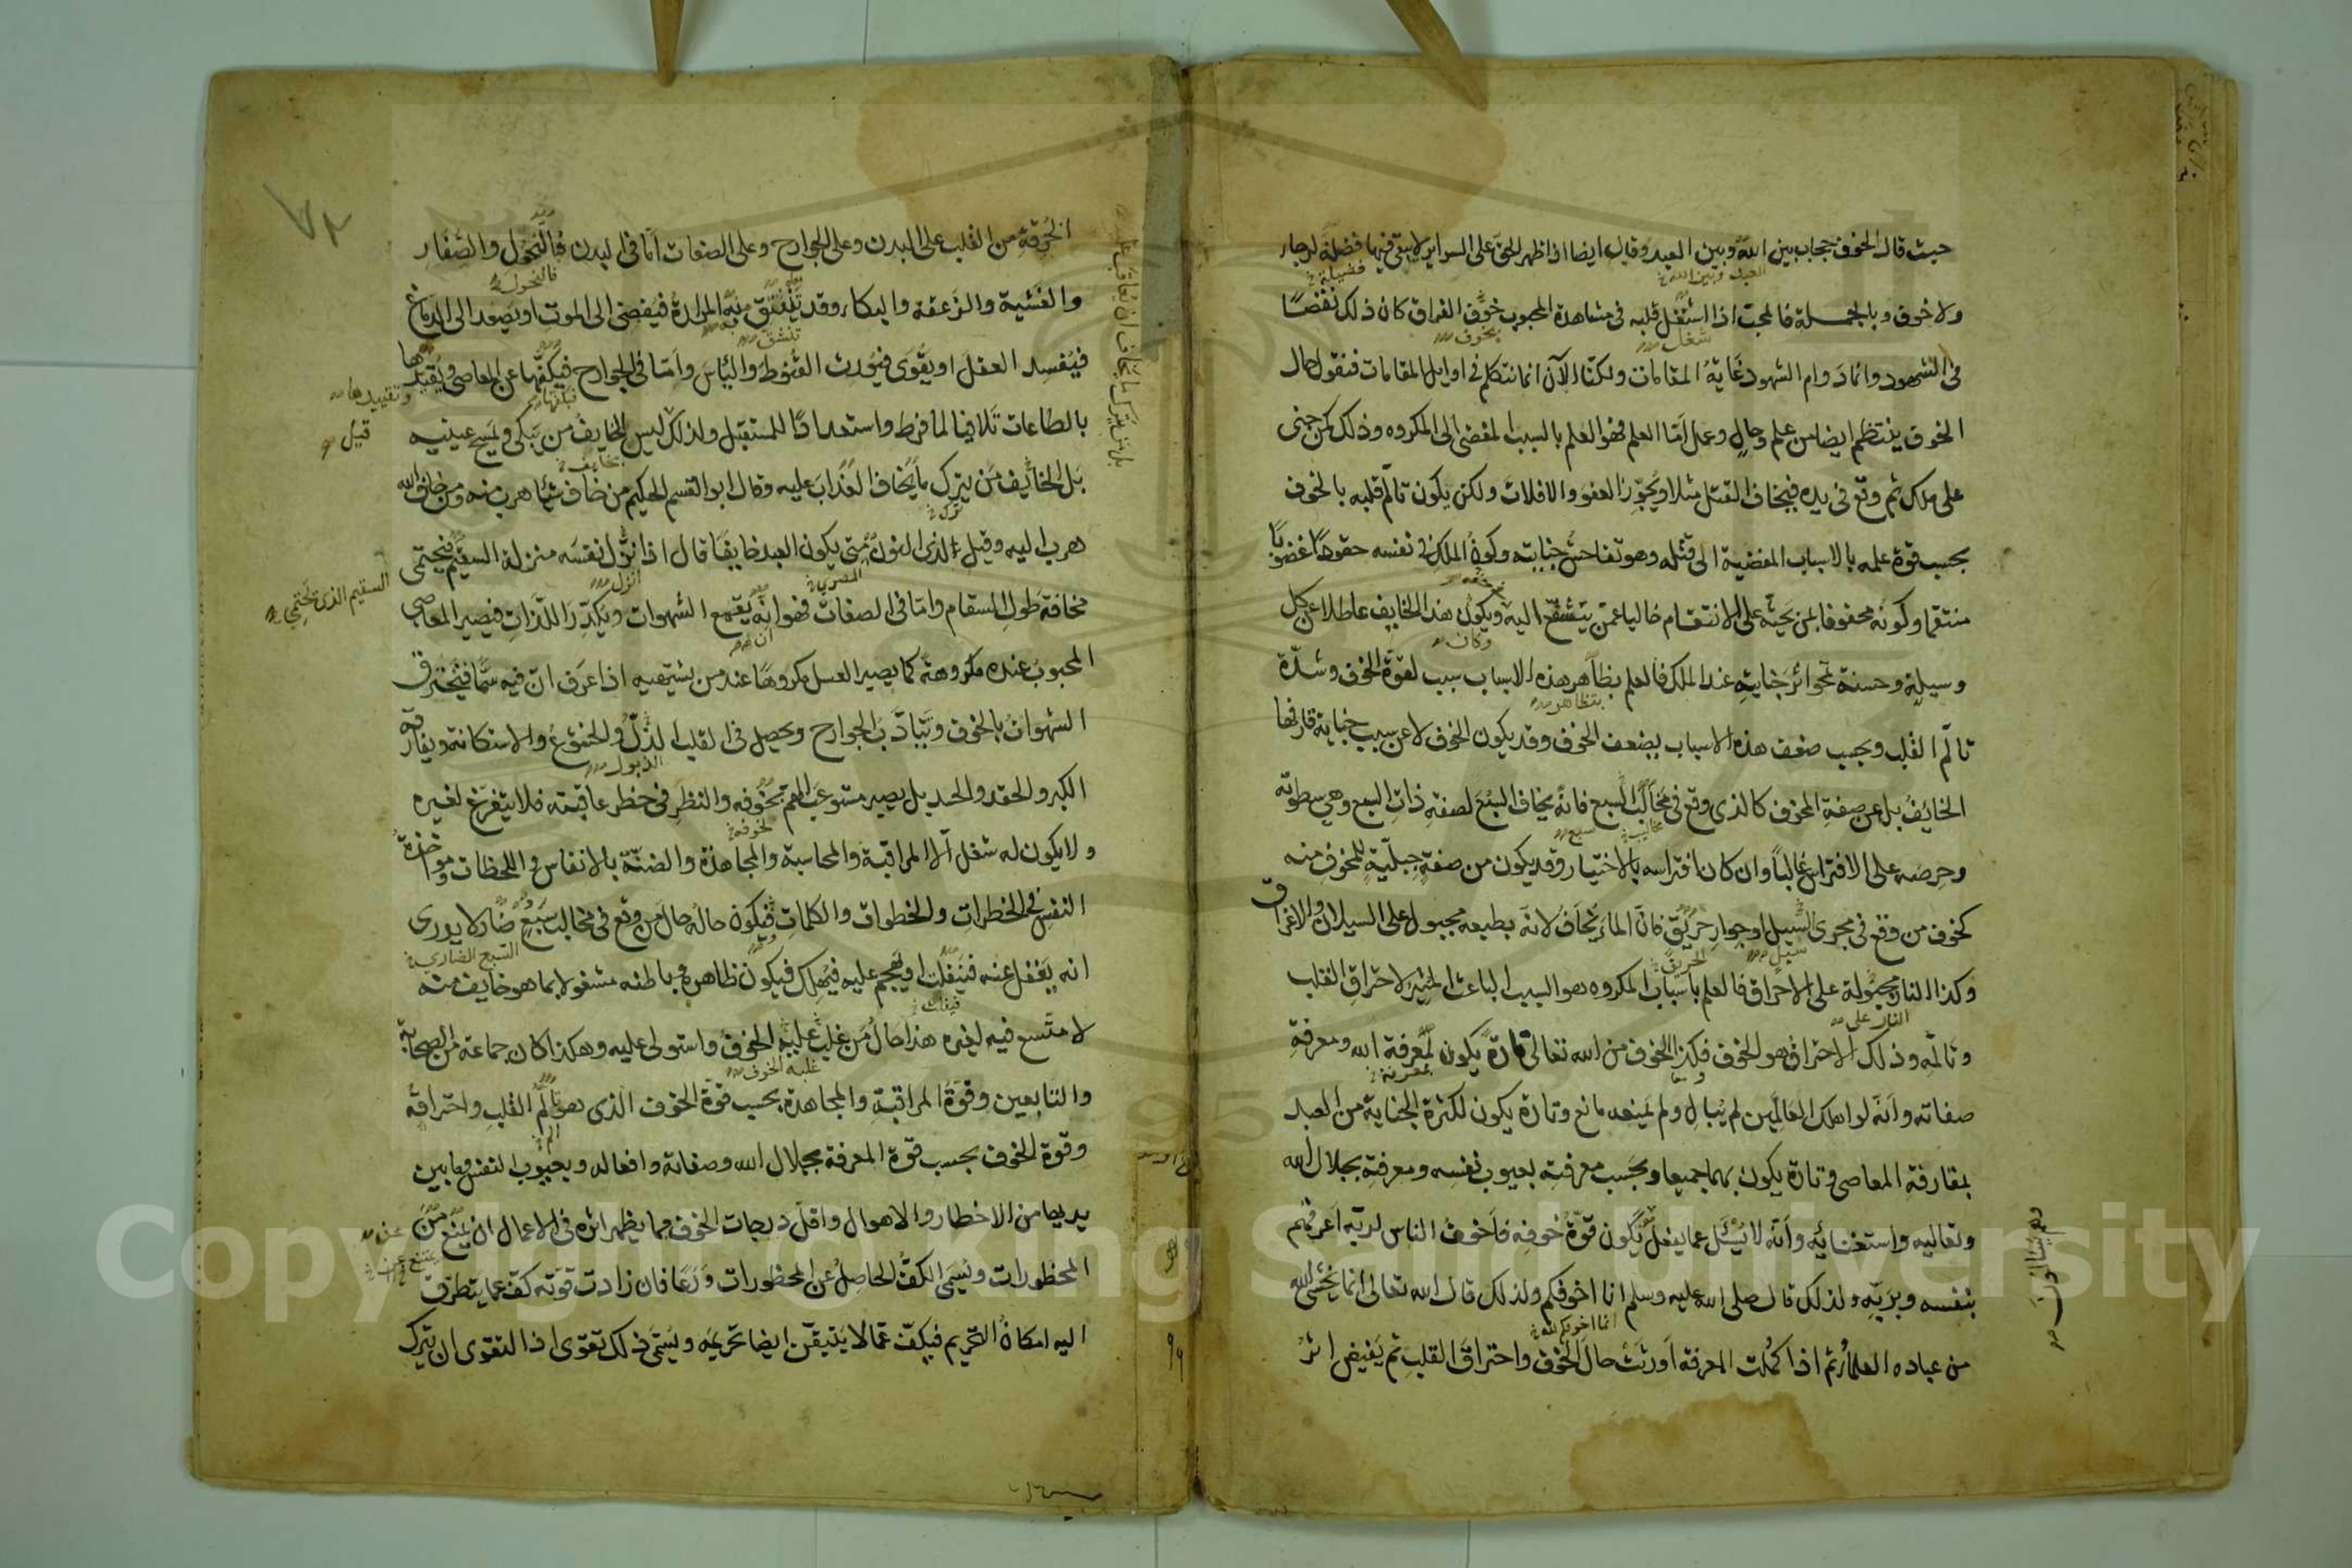 حيث قال الخوف حجاب بين الله وبين العبد وقال ايضا اذا ظهر الحق على السراير لا يبقى فيها فضلة لرجاء
ولا خوف وبالجملة فالمحب اذا اشتغل قلبه فى مشاهدة المحبوب بخوف الفراق كان ذلك نقصا
فى الشهود وانما دوام الشهود غاية المقامات ولكنا الآن انما نتكلم فى اوايل المقامات فنقول حال
الخوف ينتظم ايضا من علم وحال وعمل امّا العلم فهو العلم بالسبب المفضى الى المكروه وذلك كمن جنى
على ملك ثم وقع فى يده فيخاف القتل مثلا ويجوّز العفو والافلات ولكن يكون تألّم قلبه بالخوف
بحسب قوة علمه بالاسباب المفضية الى قتله وهو تفاحش جنايته وكون الملك فى نفسه حقودًا غضوبًا
منتقما وكونه محفوفا بمن يحثّه على الانتقام خاليا عمّن يتشفّع اليه ويكون هذا الخايف عاطلا عن كل
وسيلة وحسنة تمحو اثر جنايته عند الملك فالعلم بظاهر هذه الاسباب سبب لقوّة الخوف وشدّة
تألّم القلب وبحسب ضعف هذه الاسباب يضعف الخوف وقد يكون الخوف لا عن سبب جناية قارفها
الخايف بل عن صفة المخوف كالذى وقع فى مخالب السبع فانه يخاف السبع لصفة ذات السبع وهى سطوته
وحرصه على الافتراس غالبا وان كان افتراسه بالاختيار وقد يكون من صفة جبلّية للمخوف منه
كخوف من وقع فى مجرى السيل او جوار حريق فانّ الماء يُخاف لانه بطبعه مجبول على السيلان والاغراق
وكذا النار مجبولة على الاحراق فالعلم باسباب المكروه هو السبب الباعث المثير لاحراق القلب
وتألمه وذلك الاحتراق هو الخوف فكذا الخوف من الله تعالى تارة يكون لمعرفة الله ومعرفة
صفاته وانّه لو اهلك العالمين لم يُبالِ ولم يمنعه مانع وتارة يكون لكثرة الجناية من العبد
بمقارفة المعاصى وتارة يكون بهما جميعا وبحسب معرفته بعيوب نفسه ومعرفته بجلال الله
وتعاليه واستغنائه وأنّه لا يُسئل عما يفعل يكون قوّة خوفه فأخوف الناس لربّه اعرفهم
بنفسه وبربّه ولذلك قال صلى الله عليه وسلم انا اخوفكم ولذلك قال الله تعالى انما يخشى الله
من عباده العلماء ثم اذا كملت المعرفة اورثت حال الخوف واحتراق القلب ثم يفيض اثر
الحُرقة من القلب على البدن وعلى الجوارح وعلى الصفات امّا فى البدن فالنحول والصفار
والغشية والزعقة والبكاء وقد تنشق منه المرارة فيفضى الى الموت او يصعد الى الدماغ
فيفسد العقل او يقوى فيورث القنوط واليأس وامّا فى الجوارح فيكفّها عن المعاصى ويقيدها
بالطاعات تلافيا لما فرط واستعدادا للمستقبل ولذلك ليس الخايف من يبكى ويمسح عينيه
بل الخائف من يترك ما يخاف العذاب عليه وقال ابو القسم الحكيم من خاف شيأ هرب منه ومن خاف الله
هرب اليه وقيل لذى النون متى يكون العبد خايفا قال اذا نزّل نفسه منزلة السقيم فيحتمى
مخافة طول السقام وامّا فى الصفات فهو انه يقمع الشهوات ويكدّر اللذّات فيصير المعاصى
المحبوب عنده مكروهة كما يصير العسل مكروها عند من يشتهيه اذا عرف انّ فيه سمّا فيحترق
الشهوات بالخوف وتتأدّب الجوارح ويحصل فى القلب الذلّ والخشوع والاستكانة ويفارقه
الكبر والحقد والحسد بل يصير مستوعب الهم بخوفه والنظر فى خطر عاقبته فلا يتفرّغ لغيره
ولا يكون له شغل الا المراقبة والمحاسبة والمجاهدة والضنّة بالانفاس واللحظات ومواخذة
النفس فى الخطرات والخطوات والكلمات فيكون حاله حال من وقع فى مخالب سبع ضار لا يدرى
انه يغفل عنه فينفلت او يهجم عليه فيهلك فيكون ظاهره وباطنه مشغولا بما هو خايف منه
لا متّسع فيه لغيره هذا حال من غلب عليه الخوف واستولى عليه وهكذا كان جماعة من الصحابة
والتابعين وقوّة المراقبة والمجاهدة بحسب قوّة الخوف الذى هو تألّم القلب واحتراقه
وقوة الخوف بحسب قوّة المعرفة بجلال الله وصفاته وافعاله وبعيوب النفس وما بين
يديها من الاخطار والاهوال واقلّ درجات الخوف مما يظهر اثره فى الاعمال ان يمنع من
المحظورات ويسمى الكفّ الحاصل عن المحظورات ورعا فان زادت قوّته كفّ عما يتطرق
اليه امكان التحريم فيكفّ عمّا لا يتيقن ايضا تحريمه ويسمّى ذلك تقوى اذ التقوى ان يترك
وتقييدها
قيل
السقيم الذى يحتمى
Copyright © King Saud University